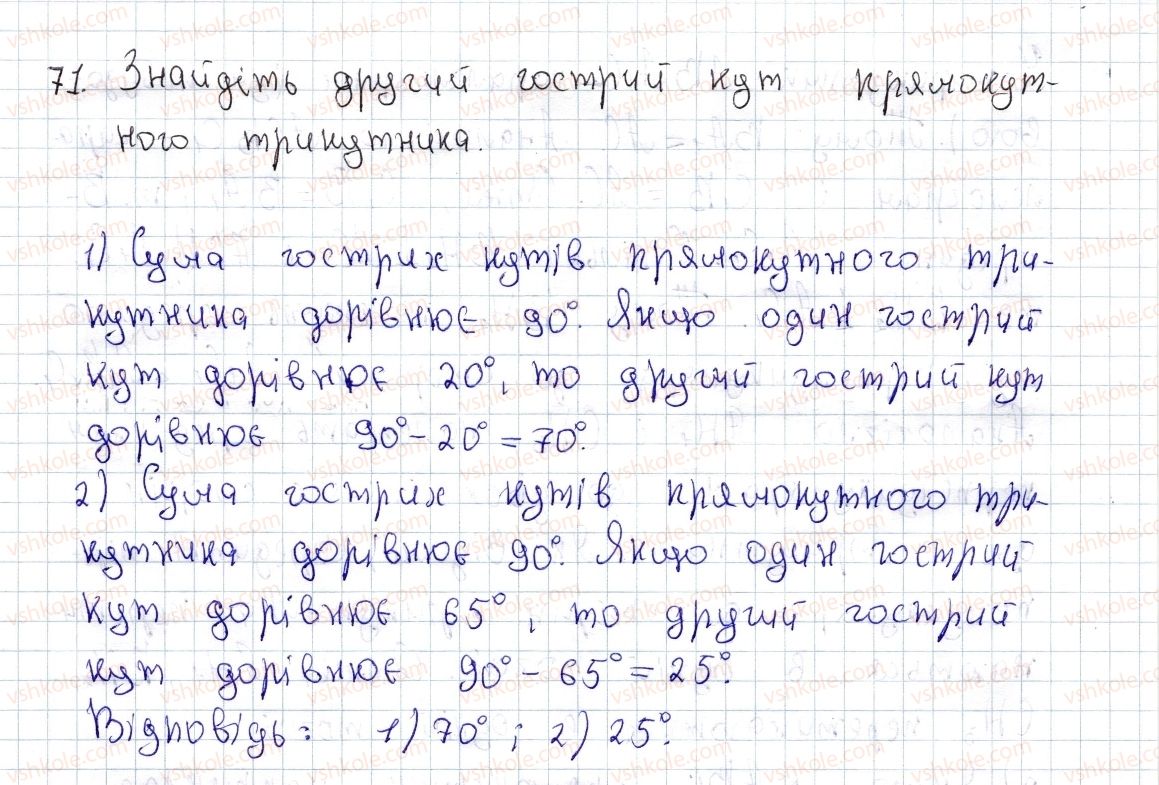 71. Знайдіть другий гострий кут прямокут-
ного трикутника.
1) Сума гострих кутів прямокутного три-
кутника дорівнює 90°. Якщо один гострий
кут дорівнює 20°, то другий гострий кут
дорівнює 90° - 20° = 70°.
2) Сума гострих кутів прямокутного три-
кутника дорівнює 90°. Якщо один гострий
кут дорівнює 65°, то другий гострий
кут дорівнює 90° - 65° = 25°.
Відповідь: 1) 70°; 2) 25°.
vshkole.com